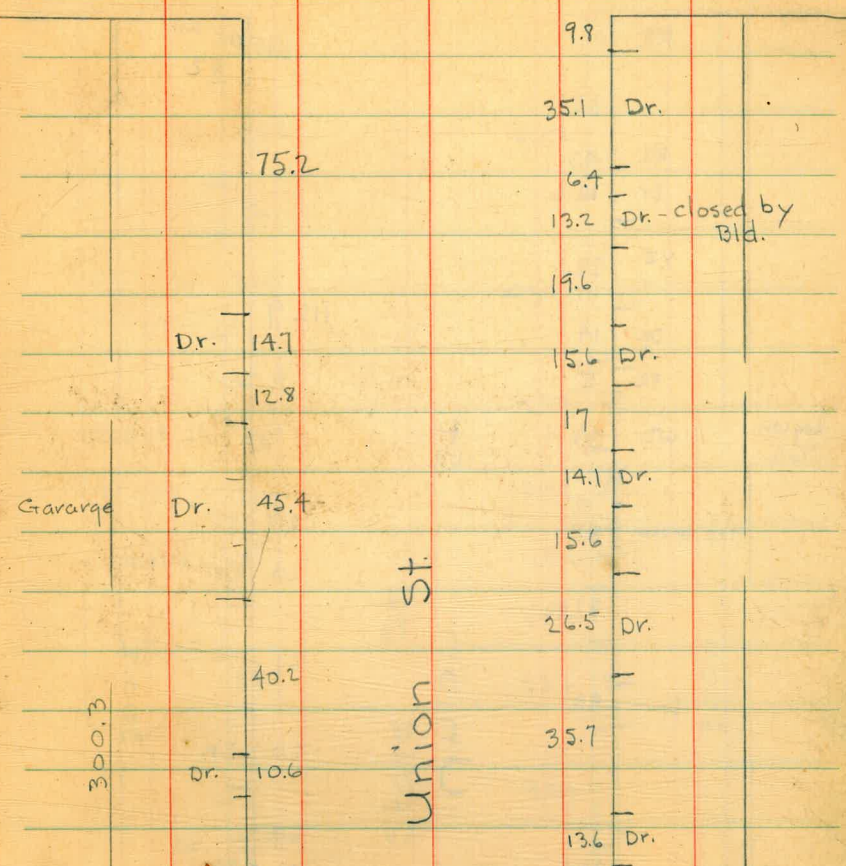 75.2
Dr. 14.7
12.8
Gararge Dr. 45.4
40.2
300.3
Dr. 10.6
Union St.
9.8
35.1 Dr.
6.4
13.2 Dr. - closed by
Bld.
19.6
15.6 Dr.
17
14.1 Dr.
15.6
26.5 Dr.
35.7
13.6 Dr.